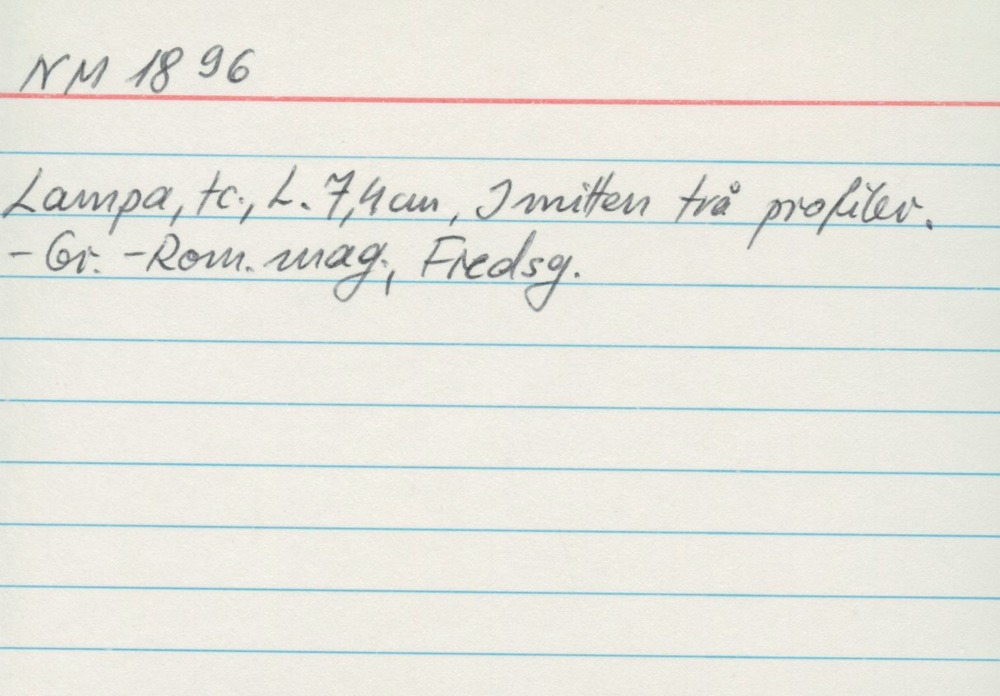 NM 1896
Lampa, tc., L. 7,4 cm, I mitten två profiler.
- Gr. - Rom. mag., Fredsg.